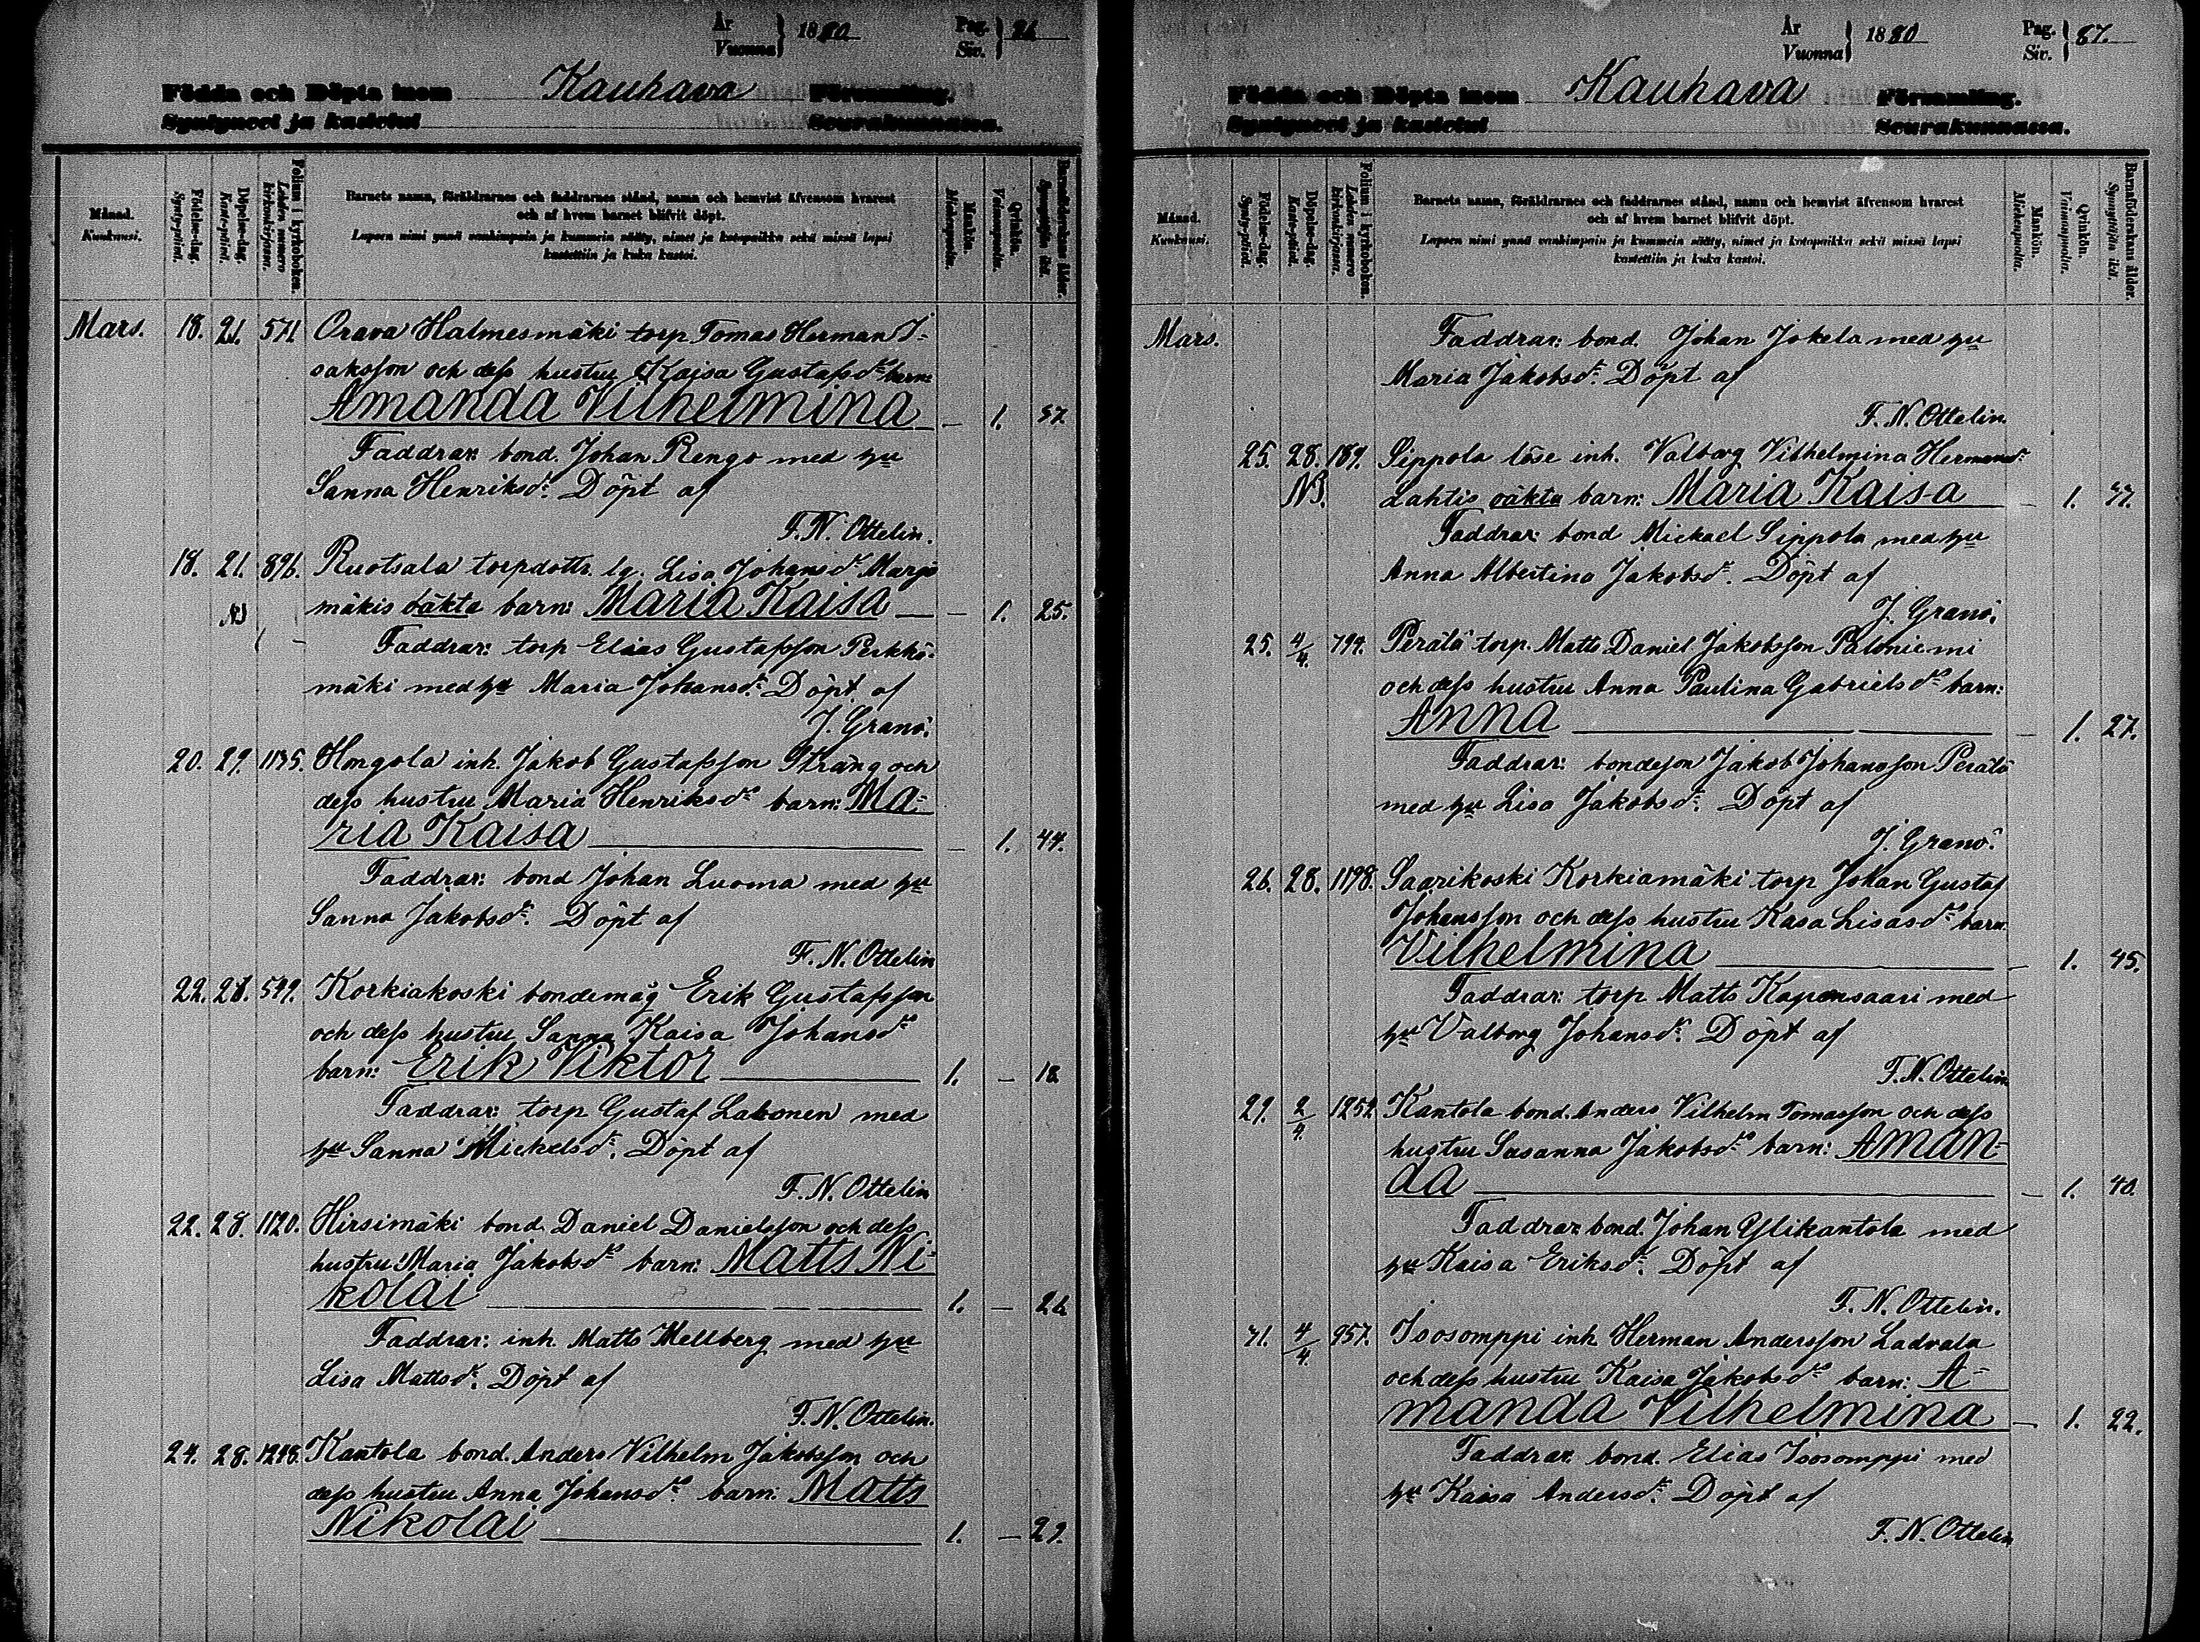 År
Vuonna } 1880
Pag.
Siv. } 86
Födda och Döpta inom Kauhava Församling.
Syntyneet ja kastetut Seurakunnassa.
Månad.
Kuukausi.
Födelse-dag.
Syntypäivä.
Döpelse-dag.
Kaste-päivä.
Folium i kyrkoboken.
Lehden numero kirkonkirjassa.
Barnets namn, föräldrarnes och faddrarnes stånd, namn och hemvist äfvensom hvarest
och af hvem barnet blifvit döpt.
Lapsen nimi ynnä vanhimpain ja kummein sääty, nimet ja kotopaikka sekä missä lapsi
kastettiin ja kuka kastoi.
Mankön.
Miehenpuolia.
Qvinkön.
Vaimonpuolia.
Barnaföderskans ålder.
Synnyttäjän ikä.
Mars. 18. 21. 571. Orava Halmesmäki torp Tomas Herman I-
saksson och dess hustru Kaisa Gustafsdrs barn:
Amanda Vilhelmina — 1. 37.
Faddrar: bond. Johan Rengo med hu
Sanna Henriksdr. Döpt af
F. N. Ottelin.
18. 21. 896. Ruotsala torpdottr. lg. Lisa Johansdr Marjo
NB mäkis oäkta barn: Maria Kaisa — 1. 25.
Faddrar: torp Elias Gustafsson Perkhö-
mäki med hu Maria Johansdr. Döpt af
J. Granö.
20. 29. 1135. Hongola inh. Jakob Gustafsson Sträng och
dess hustru Maria Henriksdrs barn: Ma-
ria Kaisa — 1. 44.
Faddrar: bond Johan Luoma med hu
Sanna Jakobsdr. Döpt af
F. N. Ottelin
22. 28. 549. Korkiakoski bondemåg Erik Gustafsson
och dess hustru Sanna Kaisa Johansdrs
barn: Erik Viktor 1. — 18.
Faddrar: torp Gustaf Lakonen med
hu Sanna Mickelsdr. Döpt af
F. N. Ottelin
22. 28. 1120. Hirsimäki bond. Daniel Danielsson och dess
hustru Maria Jakobsdrs barn: Matts Ni-
kolai 1. — 26.
Faddrar: inh. Matts Mellberg med hu
Lisa Mattsdr. Döpt af
F. N. Ottelin.
24. 28. 1248. Kantola bond. Anders Vilhelm Jakobsson och
dess hustru Anna Johansdrs barn: Matts
Nikolai 1. — 29.
År
Vuonna } 1880
Pag.
Siv. } 87.
Födda och Döpta inom Kauhava Församling.
Syntyneet ja kastetut Seurakunnassa.
Månad.
Kuukausi.
Födelse-dag.
Synty-päivä.
Döpelse-dag.
Kaste-päivä.
Folium i kyrkoboken.
Lehden numero kirkonkirjassa.
Barnets namn, föräldrarnes och faddrarnes stånd, namn och hemvist äfvensom hvarest
och af hvem barnet blifvit döpt.
Lapsen nimi ynnä vanhimpain ja kummein sääty, nimet ja kotopaikka sekä missä lapsi
kastettiin ja kuka kastoi.
Mankön.
Miehenpuolia.
Qvinkön.
Vaimonpuolia.
Barnaföderskans ålder.
Synnyttäjän ikä.
Mars. Faddrar: bond. Johan Jokela med hu
Maria Jakobsdr. Döpt af
F. N. Ottelin.
25. 28. 189. Sippola löse inh. Valborg Vilhelmina Hermansdr.
NB. Lahtis oäkta barn: Maria Kaisa — 1. 37.
Faddrar: bond Mickael Sippola med hu
Anna Albertina Jakobsdr. Döpt af
J. Granö.
25. 4/4. 794. Perälä torp. Matts Daniel Jakobsson Paloniemi
och dess hustru Anna Paulina Gabrielsdrs barn:
Anna — 1. 27.
Faddrar: bondeson Jakob Johansson Perälä
med hu Lisa Jakobsdr. Döpt af
J. Granö.
26. 28. 1198. Saarikoski Korkiamäki torp Johan Gustaf
Johansson och dess hustru Kasa Lisasdrs barn
Vilhelmina — 1. 45.
Faddrar: torp Matts Kapensaari med
hu Valborg Johansdr. Döpt af
F. N. Ottelin
29. 2/4. 1252. Kantola bond. Anders Vilhelm Tomasson och dess
hustru Susanna Jakobsdrs barn: Aman-
da — 1. 40.
Faddrar: bond. Johan Ylikantola med
hu Kaisa Eriksdr. Döpt af
F. N. Ottelin.
31. 4/4. 957. Isosomppi inh Herman Andersson Ladvala
och dess hustru Kaisa Jakobsdrs barn: A-
manda Vilhelmina — 1. 22.
Faddrar: bond. Elias Isosomppi med
hu Kaisa Andersdr. Döpt af
F. N. Ottelin